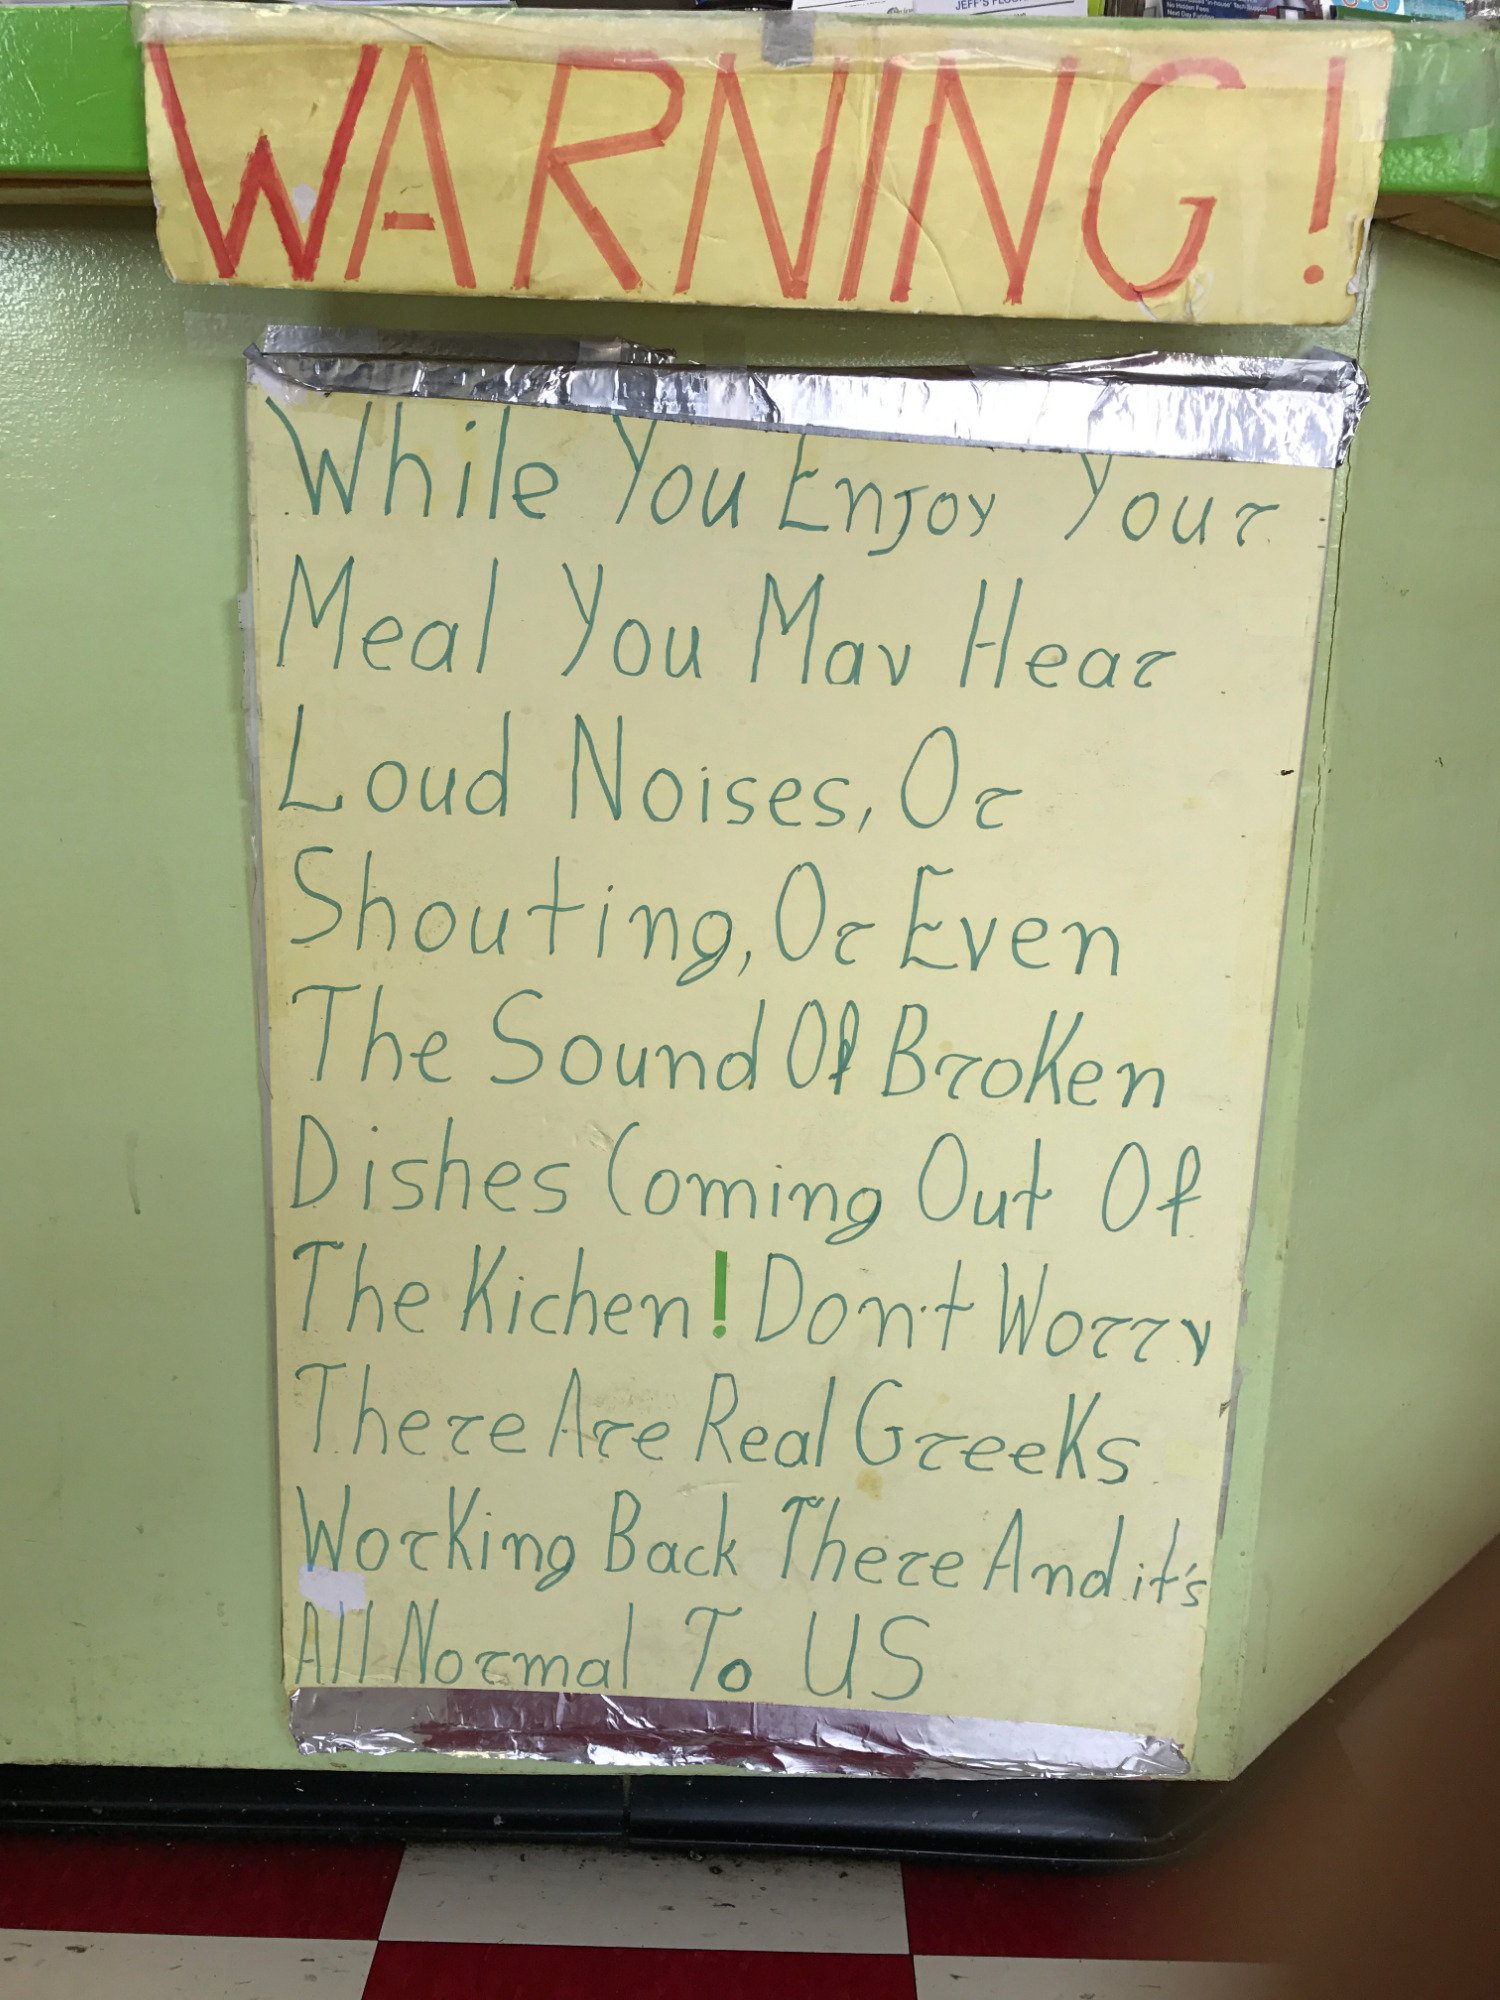 JEFF'S
No Hidden Fees
WARNING!
While You Enjoy Your
Meal You May Hear
Loud Noises, Or
Shouting, Or Even
The Sound Of Broken
Dishes Coming Out Of
The Kichen! Don't Worry
There Are Real Greeks
Working Back There And it's
All Normal To US